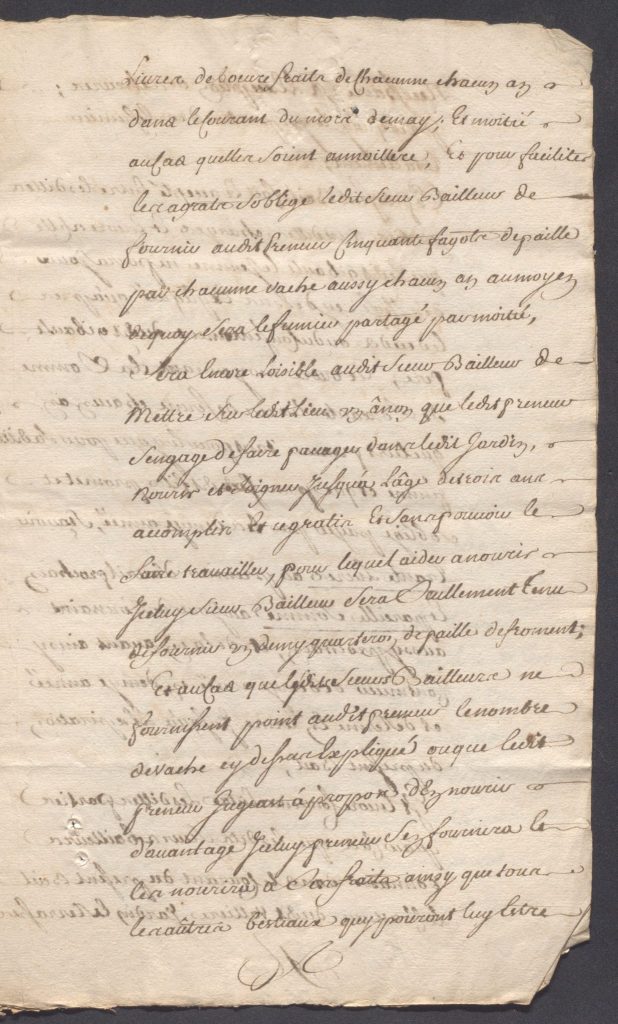 Livres de beure fraits de Chacunne chacun an
dans le Courant du mois demay, Et moitié
au Cas quelles soient annoillere, Et pour faciliter
lesagrats soblige ledit sieur Bailleur de
fournir audit preneur Cinquante fagots depaille
par chacunne vache aussy chacun an aumoyen
dequoy sera lefumier partagé par moitié,
Sera Encore Loisible audit sieur Bailleur de
Mettre sur ledit Lieu un ânon que ledit preneur
sengage defaire pacager dans ledit Jardin,
Nourir et soigner Jusqua Lâge detrois ans
acomplis Et cegratis Et sans pouvoir le
faire travailler, pour lequel aider anourir
Jceluy sieur Bailleur sera Paillement tenu
defournir un demy quarteron depaille defroment;
Et au Cas que ledit sieur Bailleurs ne
fournissent point audit preneur lenombre
devache cy dessus Expliqué ouque ledit
preneur Jugeast àpropos dEn nourir
davantage Jceluy preneur sen fournira Et
les nourira à ses fraits ainsy que tous
les autres bestiaux quy pouront luy Estre